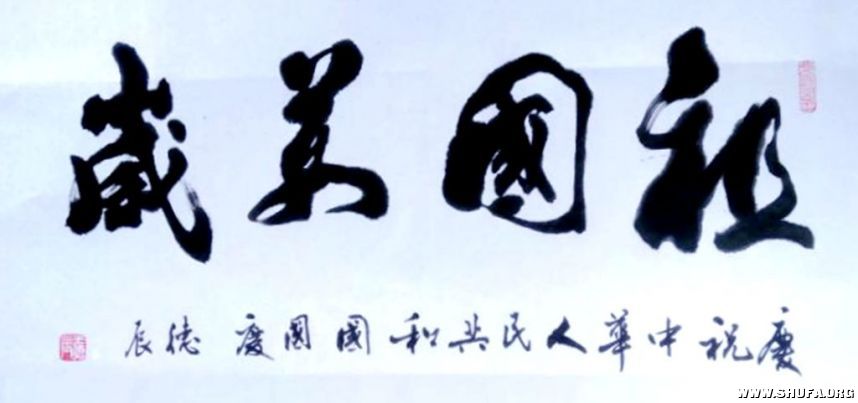 祖國萬歲
慶祝中華人民共和國國慶 德辰
WWW.SHUFA.ORG